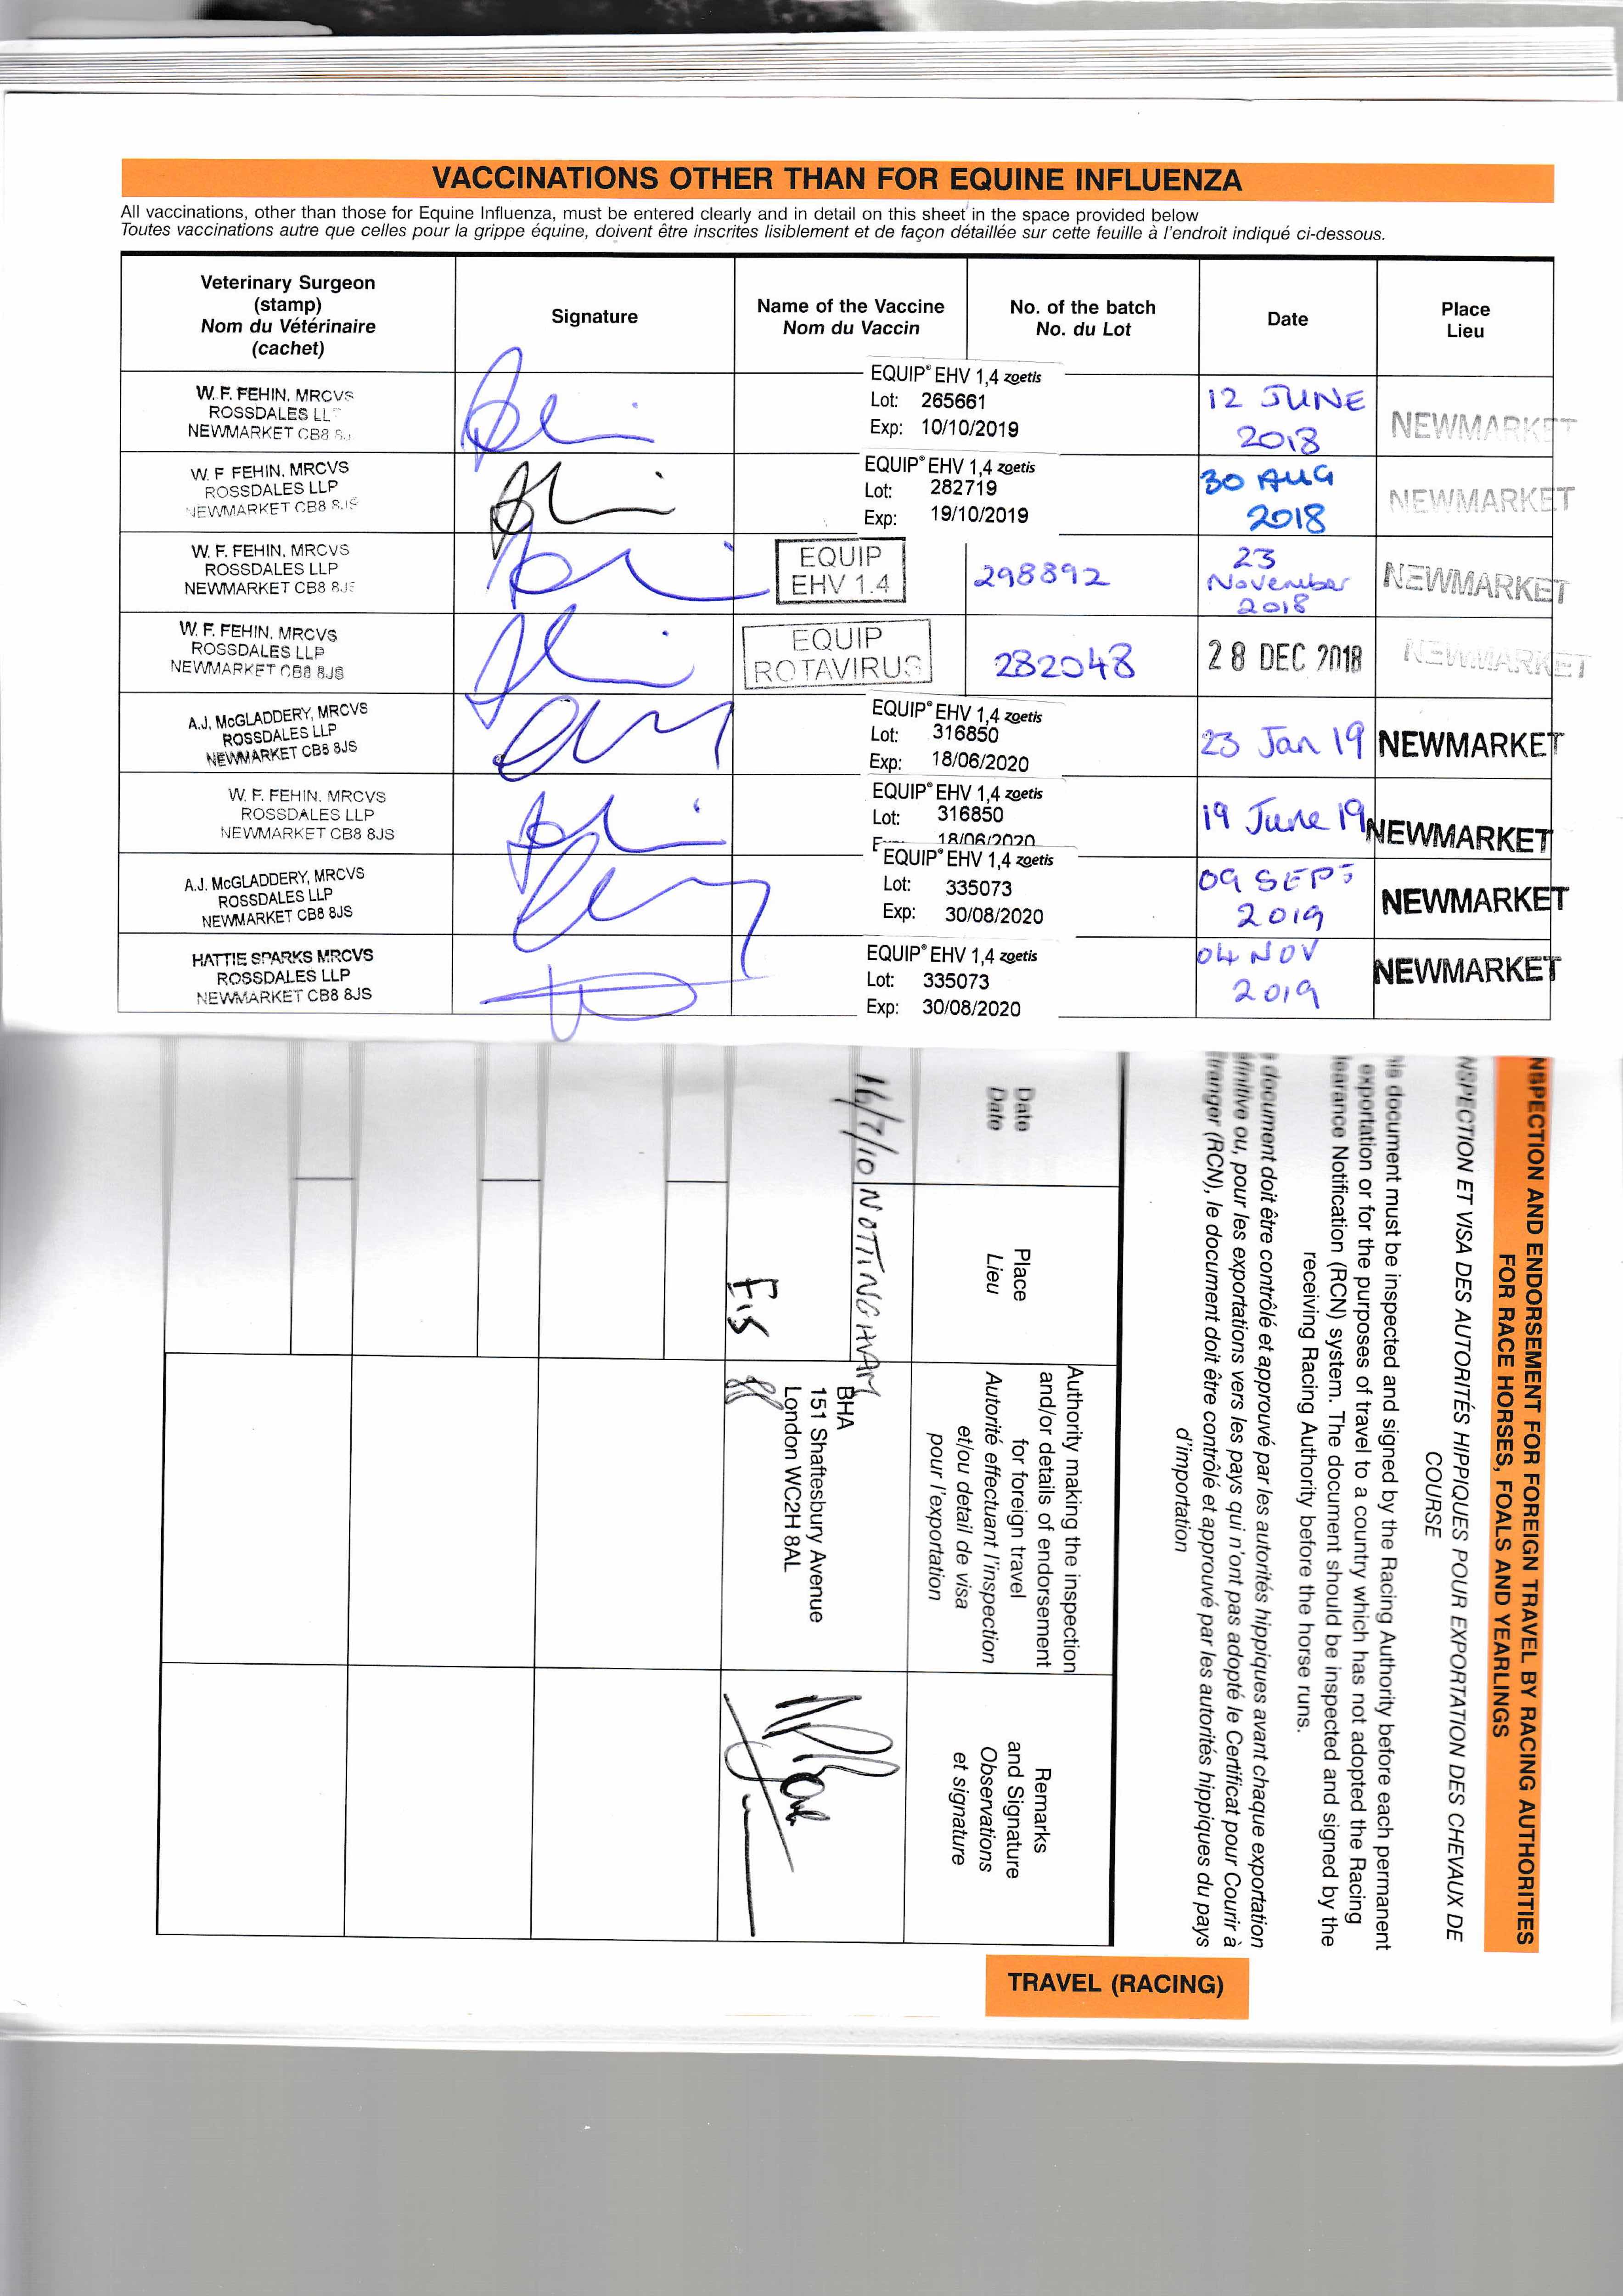 VACCINATIONS OTHER THAN FOR EQUINE INFLUENZA
All vaccinations, other than those for Equine Influenza, must be entered clearly and in detail on this sheet in the space provided below
Toutes vaccinations autre que celles pour la grippe équine, doivent être inscrites lisiblement et de façon détaillée sur cette feuille à l'endroit indiqué ci-dessous.
Veterinary Surgeon
(stamp)
Nom du Vétérinaire
(cachet)
Signature
Name of the Vaccine
Nom du Vaccin
No. of the batch
No. du Lot
Date
Place
Lieu
W. F. FEHIN, MRCVS
ROSSDALES LL
NEWMARKET CB8
EQUIP® EHV 1,4 zoetis
Lot: 265661
Exp: 10/10/2019
12 JUNE
2018
NEWMARKET
W. F FEHIN. MRCVS
ROSSDALES LLP
NEWMARKET CB8 8JS
EQUIP® EHV 1,4 zoetis
Lot: 282719
Exp: 19/10/2019
30 AUG
2018
NEWMARKET
W. F. FEHIN, MRCVS
ROSSDALES LLP
NEWMARKET CB8 8JS
EQUIP
EHV 1.4
298892
23
November
2018
NEWMARKET
W. F. FEHIN, MRCVS
ROSSDALES LLP
NEWMARKET CB8 8JS
EQUIP
ROTAVIRUS
282048
28 DEC 2018
NEWMARKET
A.J. McGLADDERY, MRCVS
ROSSDALES LLP
NEWMARKET CB8 8JS
EQUIP® EHV 1,4 zoetis
Lot: 316850
Exp: 18/06/2020
23 Jan 19
NEWMARKET
W. F. FEHIN. MRCVS
ROSSDALES LLP
NEWMARKET CB8 8JS
EQUIP® EHV 1,4 zoetis
Lot: 316850
18/06/2020
19 June 19
NEWMARKET
A.J. McGLADDERY, MRCVS
ROSSDALES LLP
NEWMARKET CB8 8JS
EQUIP® EHV 1,4 zoetis
Lot: 335073
Exp: 30/08/2020
09 SEPT
2019
NEWMARKET
HATTIE SPARKS MRCVS
ROSSDALES LLP
NEWMARKET CB8 8JS
EQUIP® EHV 1,4 zoetis
Lot: 335073
Exp: 30/08/2020
04 NOV
2019
NEWMARKET
NSPECTION AND ENDORSEMENT FOR FOREIGN TRAVEL BY RACING AUTHORITIES
FOR RACE HORSES, FOALS AND YEARLINGS
NSPECTION ET VISA DES AUTORITÉS HIPPIQUES POUR EXPORTATION DES CHEVAUX DE
COURSE
his document must be inspected and signed by the Racing Authority before each permanent
exportation or for the purposes of travel to a country which has not adopted the Racing
learance Notification (RCN) system. The document should be inspected and signed by the
receiving Racing Authority before the horse runs.
document doit être contrôlé et approuvé par les autorités hippiques avant chaque exportation
éfinitive ou, pour les exportations vers les pays qui n'ont pas adopté le Certificat pour Courir à
tranger (RCN), le document doit être contrôlé et approuvé par les autorités hippiques du pays
d'importation
Date
Date
Place
Lieu
Authority making the inspection
and/or details of endorsement
for foreign travel
Autorité effectuant l'inspection
et/ou detail de visa
pour l'exportation
Remarks
and Signature
Observations
et signature
16/7/10 NOTTINGHAM
BHA
151 Shaftesbury Avenue
London WC2H 8AL
TRAVEL (RACING)